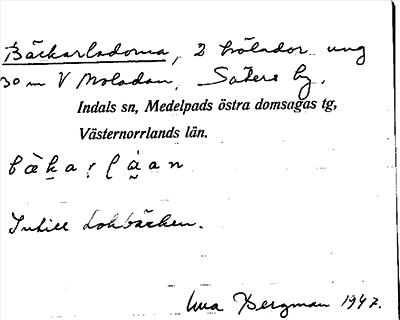 Bäckarladorna, 2 hölador ung
30 m V Moladan, Säters by.
Indals sn, Medelpads östra domsagas tg,
Västernorrlands län.
Intill Lokbäcken.
Bergman 1947.